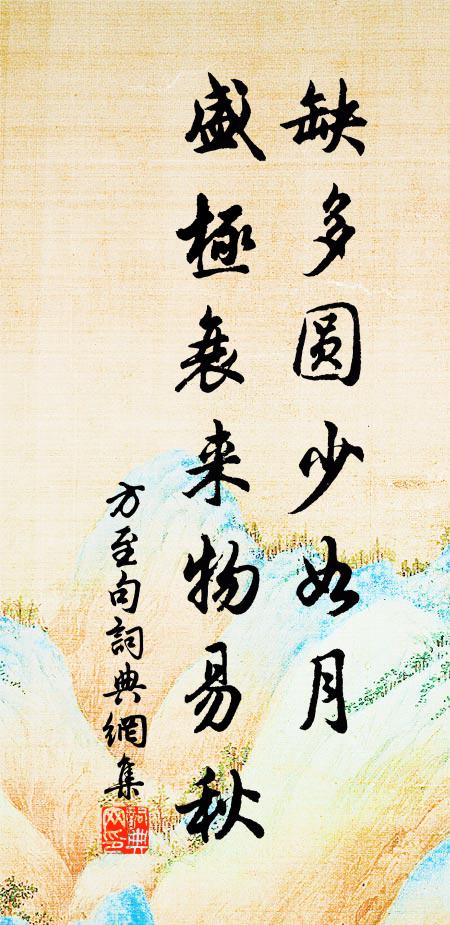 缺多圆少如月
盛極衰来物易秋
方至句詞典網集
詞典